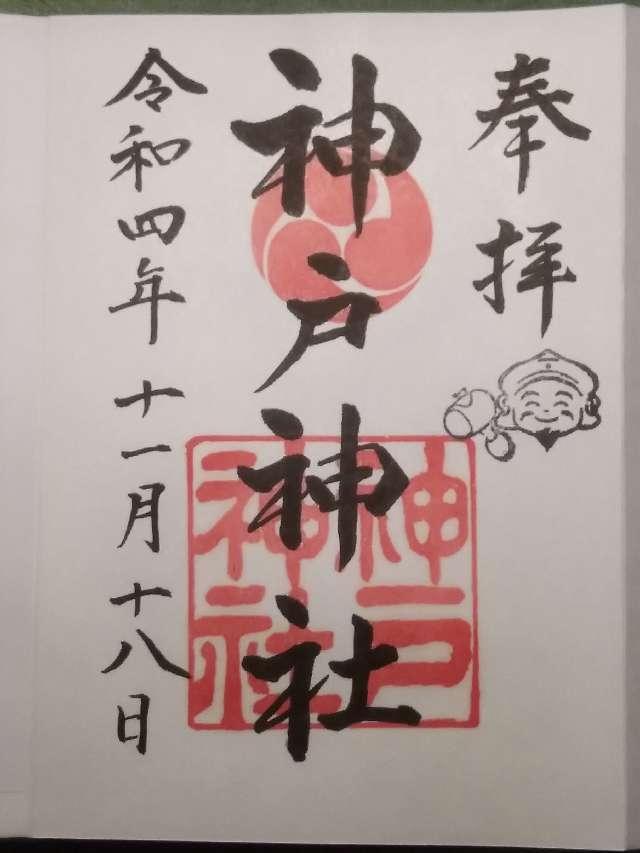 奉拝
神戸神社
神戸
神社
令和四年十一月十八日